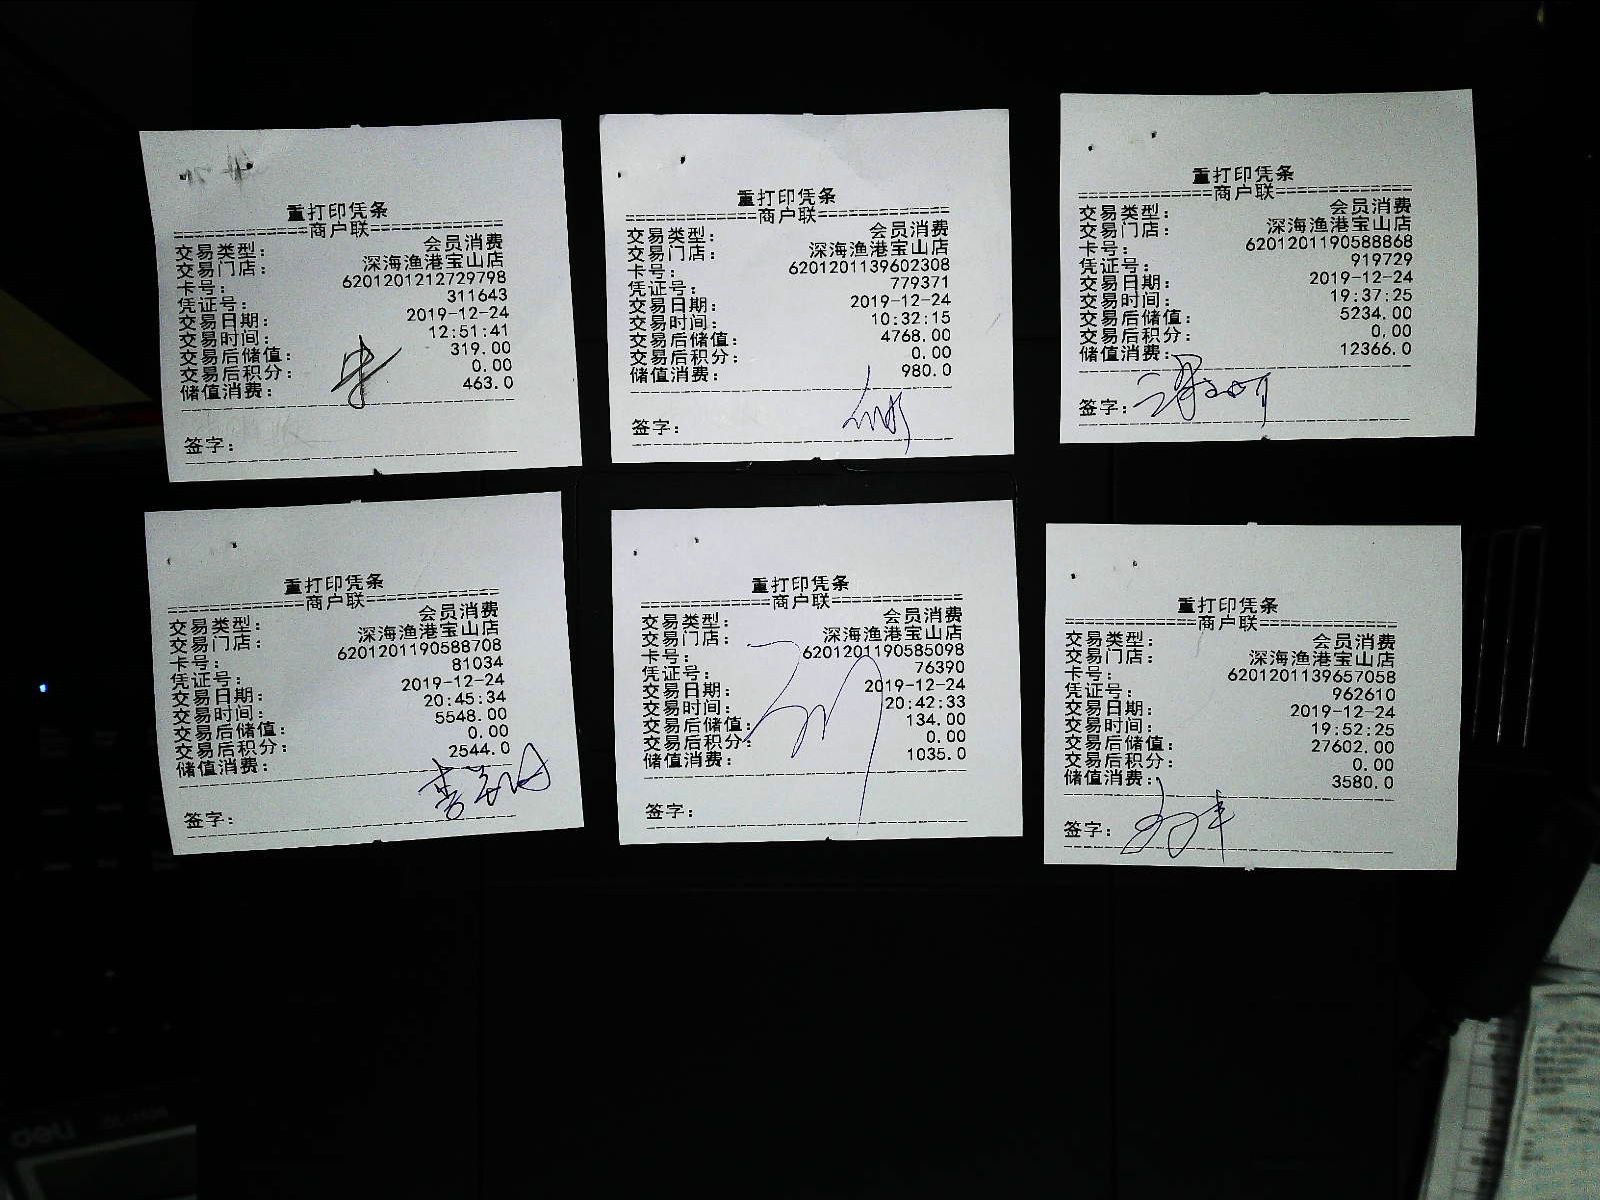 重打印凭条
==============商户联==============
交易类型: 会员消费
交易门店: 深海渔港宝山店
卡号: 6201201212729798
凭证号: 311643
交易日期: 2019-12-24
交易时间: 12:51:41
交易后储值: 319.00
交易后积分: 0.00
储值消费: 463.0
签字:
重打印凭条
==============商户联==============
交易类型: 会员消费
交易门店: 深海渔港宝山店
卡号: 6201201139602308
凭证号: 779371
交易日期: 2019-12-24
交易时间: 10:32:15
交易后储值: 4768.00
交易后积分: 0.00
储值消费: 980.0
签字:
重打印凭条
==============商户联==============
交易类型: 会员消费
交易门店: 深海渔港宝山店
卡号: 6201201190588868
凭证号: 919729
交易日期: 2019-12-24
交易时间: 19:37:25
交易后储值: 5234.00
交易后积分: 0.00
储值消费: 12366.0
签字:
重打印凭条
==============商户联==============
交易类型: 会员消费
交易门店: 深海渔港宝山店
卡号: 6201201190588708
凭证号: 81034
交易日期: 2019-12-24
交易时间: 20:45:34
交易后储值: 5548.00
交易后积分: 0.00
储值消费: 2544.0
签字:
重打印凭条
==============商户联==============
交易类型: 会员消费
交易门店: 深海渔港宝山店
卡号: 6201201190585098
凭证号: 76390
交易日期: 2019-12-24
交易时间: 20:42:33
交易后储值: 134.00
交易后积分: 0.00
储值消费: 1035.0
签字:
重打印凭条
==============商户联==============
交易类型: 会员消费
交易门店: 深海渔港宝山店
卡号: 6201201139657058
凭证号: 962610
交易日期: 2019-12-24
交易时间: 19:52:25
交易后储值: 27602.00
交易后积分: 0.00
储值消费: 3580.0
签字:
deli